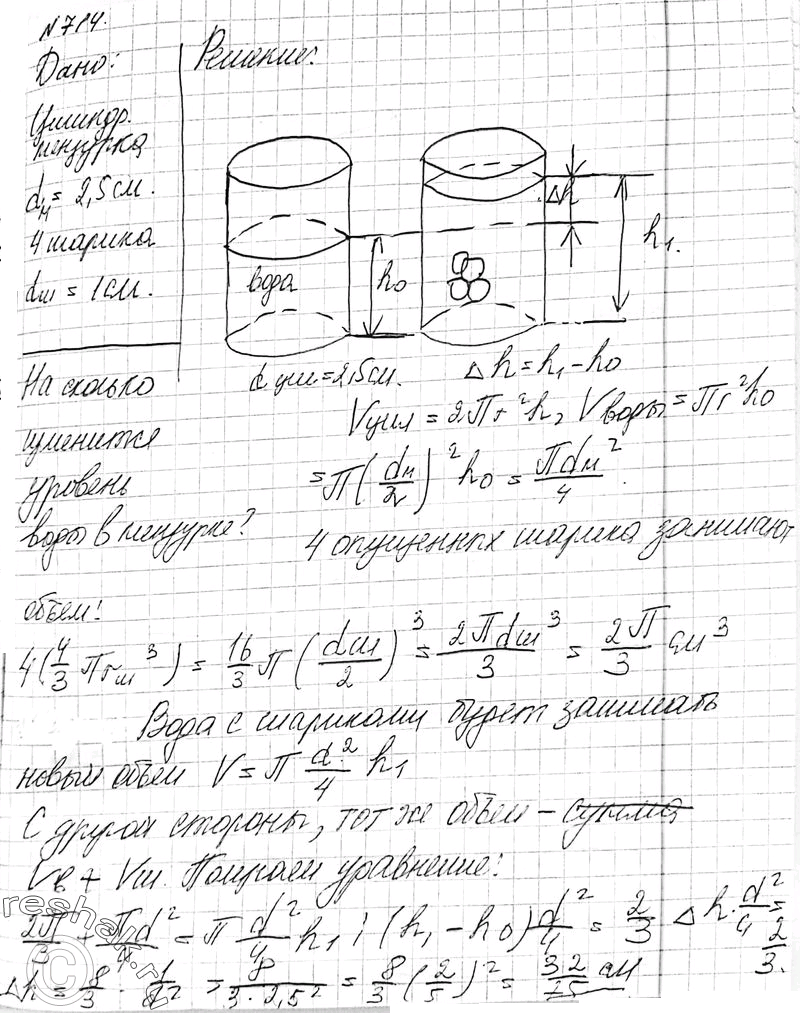 N 714.
Дано:
Решение:
Цилиндр.
мензурка
dм = 2,5 см.
4 шарика
dш = 1 см.
вода
h₀
Δh
h₁.
На сколько
изменится
уровень
воды в мензурке?
d цил = 2,5 см.
Δh = h₁ - h₀
Vцил = 2Пr²h, Vводы = Пr²h₀
= П(dм/2)²h₀ = Пdм²/4.
4 опущенных шарика занимают
объем:
4(4/3 Пrш³) = 16/3 П(dш/2)³ = 2Пdш³/3 = 2П/3 см³
Вода с шариками будет занимать
новый объем V = П d²/4 h₁
С другой стороны, тот же объем – сумма
Vв + Vш. Получаем уравнение:
2П/3 + П/4 d² = П d²/4 h₁; (h₁ - h₀) d²/4 = 2/3 Δh · d²/4 = 2/3.
Δh = 8/3 · 1/d² = 8/(3 · 2,5²) = 8/3 (2/5)² = 32/75 см
reshak.ru